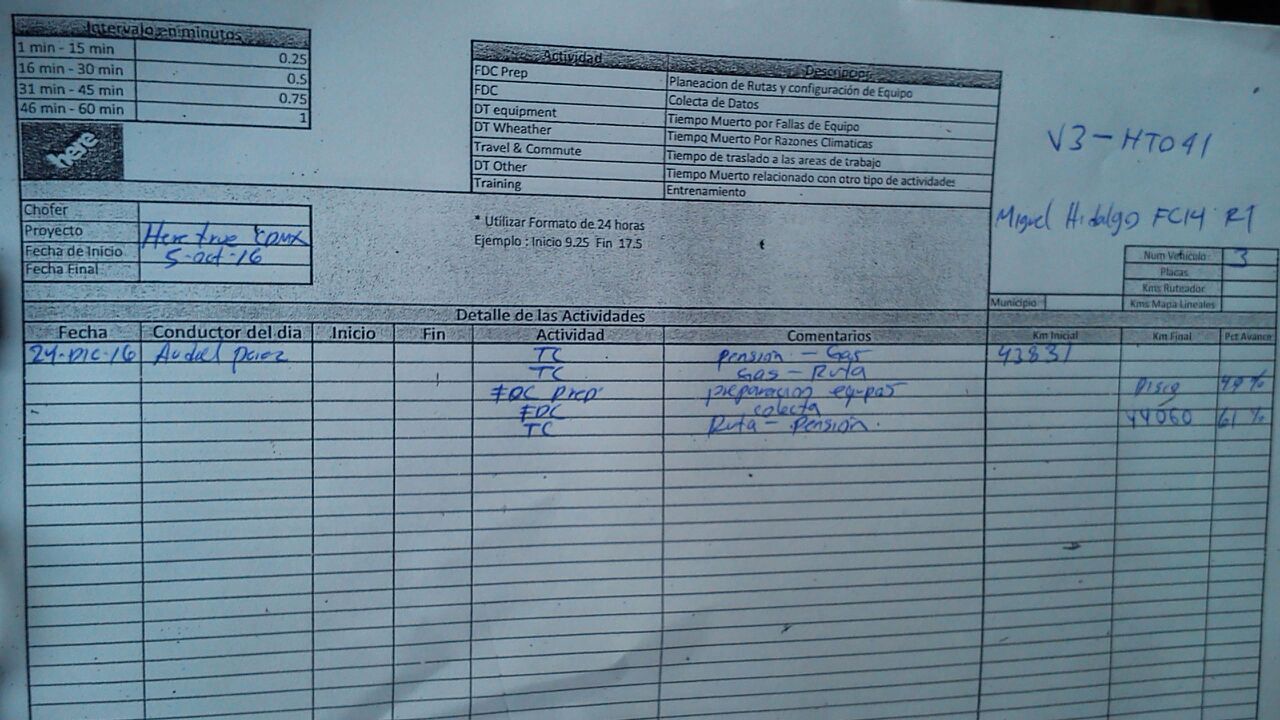 Intervalo en minutos
1 min - 15 min 0.25
16 min - 30 min 0.5
31 min - 45 min 0.75
46 min - 60 min 1
here
Actividad Descripcion
FDC Prep Planeacion de Rutas y configuración de Equipo
FDC Colecta de Datos
DT equipment Tiempo Muerto por Fallas de Equipo
DT Wheather Tiempo Muerto Por Razones Climaticas
Travel & Commute Tiempo de traslado a las areas de trabajo
DT Other Tiempo Muerto relacionado con otro tipo de actividades
Training Entrenamiento
V3-HT041
Miguel Hidalgo FC14 RT
Chofer
Proyecto Here true CDMX
Fecha de Inicio 5-oct-16
Fecha Final
* Utilizar Formato de 24 horas
Ejemplo : Inicio 9.25 Fin 17.5
Num Vehiculo 3
Placas
Kms Ruteador
Municipio Kms Mapa Lineales
Detalle de las Actividades
Fecha Conductor del dia Inicio Fin Actividad Comentarios Km Inicial Km Final Pct Avance
24-DIC-16 Audiel perez TC Pensión - Gas 43831
TC Gas - Ruta
FDC Prep preparacion equipos Disco 49%
FDC colecta
TC Ruta - Pensión. 44060 61%